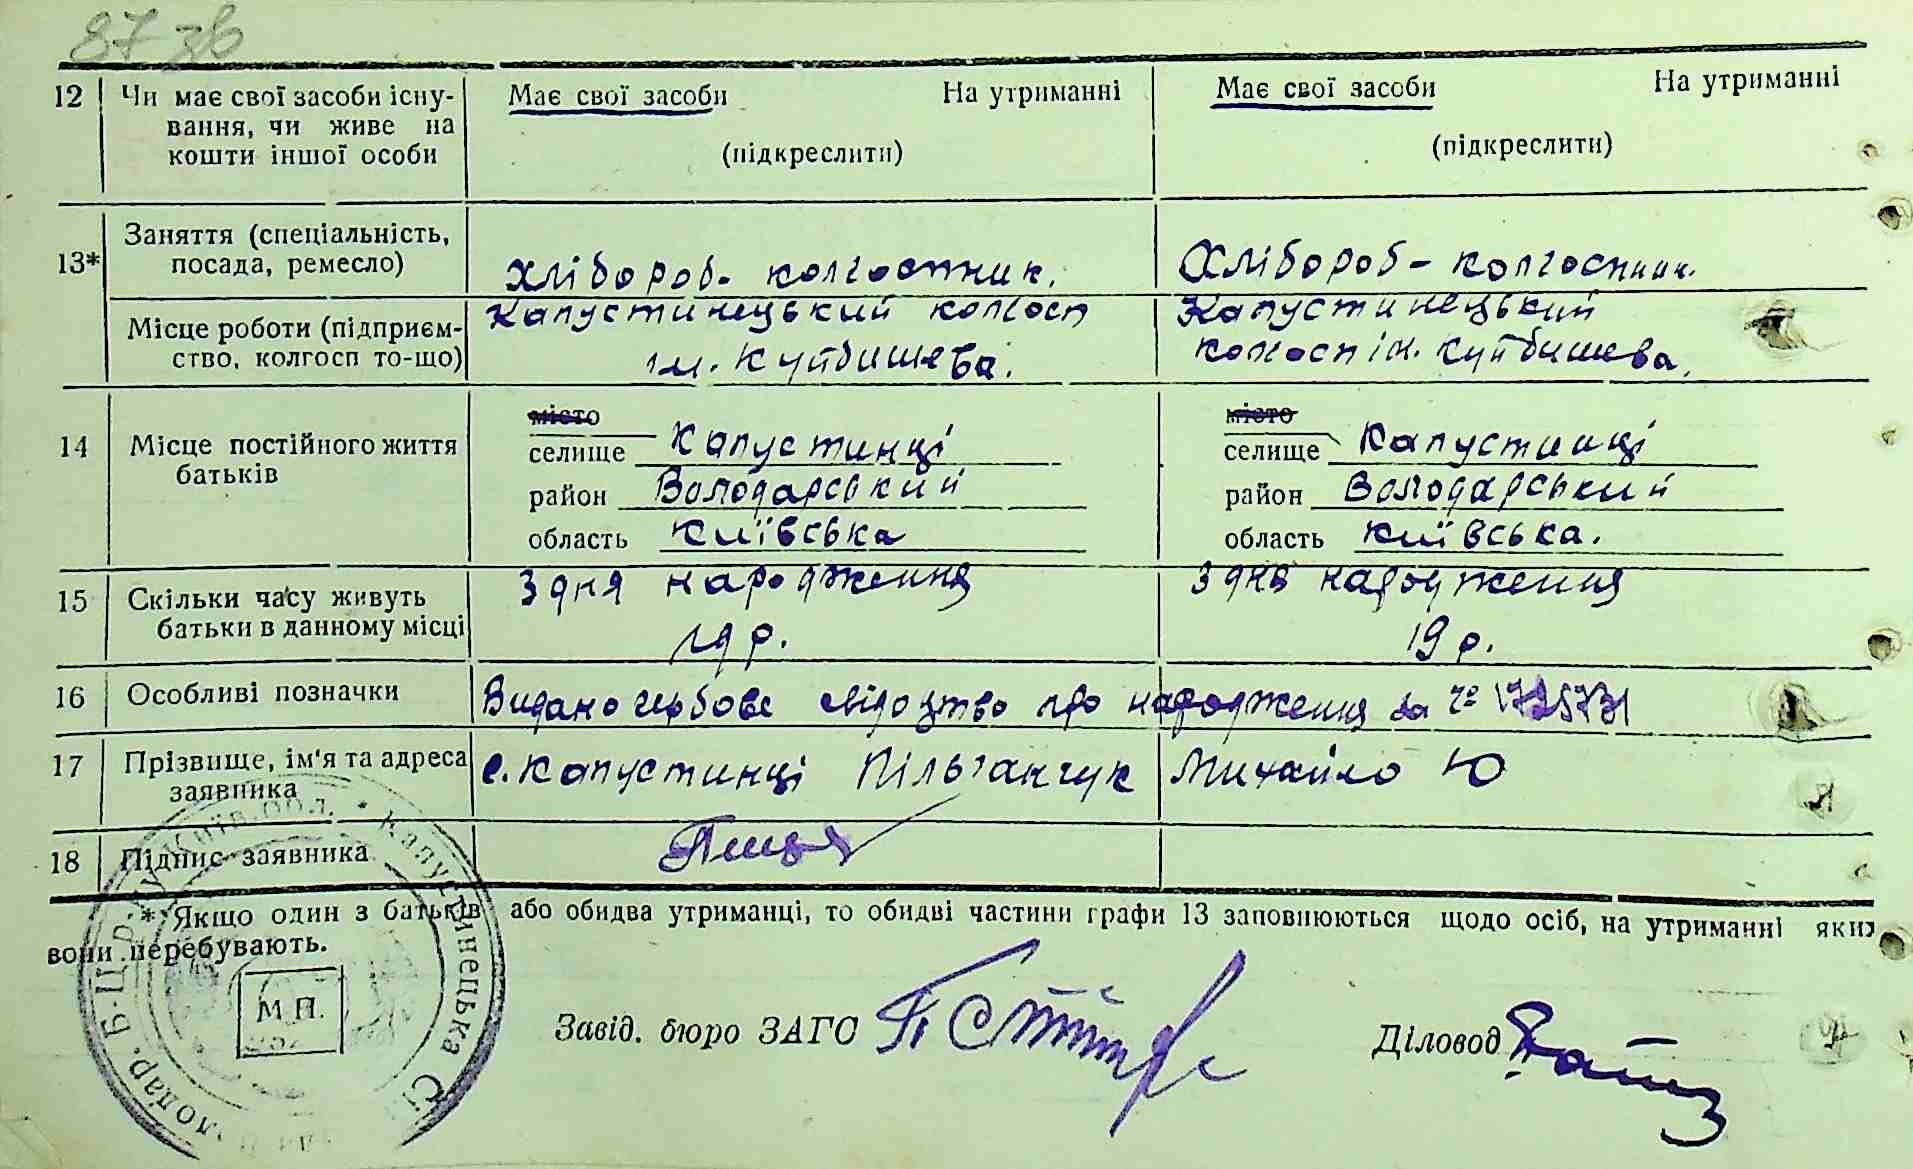 87 зв
12 Чи має свої засоби існу- Має свої засоби На утриманні Має свої засоби На утриманні
вання, чи живе на
кошти іншої особи (підкреслити) (підкреслити)
13* Заняття (спеціальність,
посада, ремесло) Хлібороб- колгоспник. Хлібороб- колгоспник.
Місце роботи (підприєм- Капустинецький колгосп Капустинецький
ство, колгосп то-що) ім. Куйбишева. колгосп ім. Куйбишева.
місто місто
14 Місце постійного життя селище Капустинці селище Капустинці
батьків район Володарський район Володарський
область Київська область Київська.
15 Скільки часу живуть З дня народження З дня народження
батьки в данному місці 19 р. 19 р.
16 Особливі позначки Видано гербове свідоцтво про народження за №
17 Прізвище, ім'я та адреса с. Капустинці Пільганчук Михайло Ю
заявника
18 Підпис заявника
* Якщо один з батьків або обидва утриманці, то обидві частини графи 13 заповнюються щодо осіб, на утриманні яких
вони перебувають.
М П.
Завід. бюро ЗАГС Діловод
Київ. обл. * Капустинецька